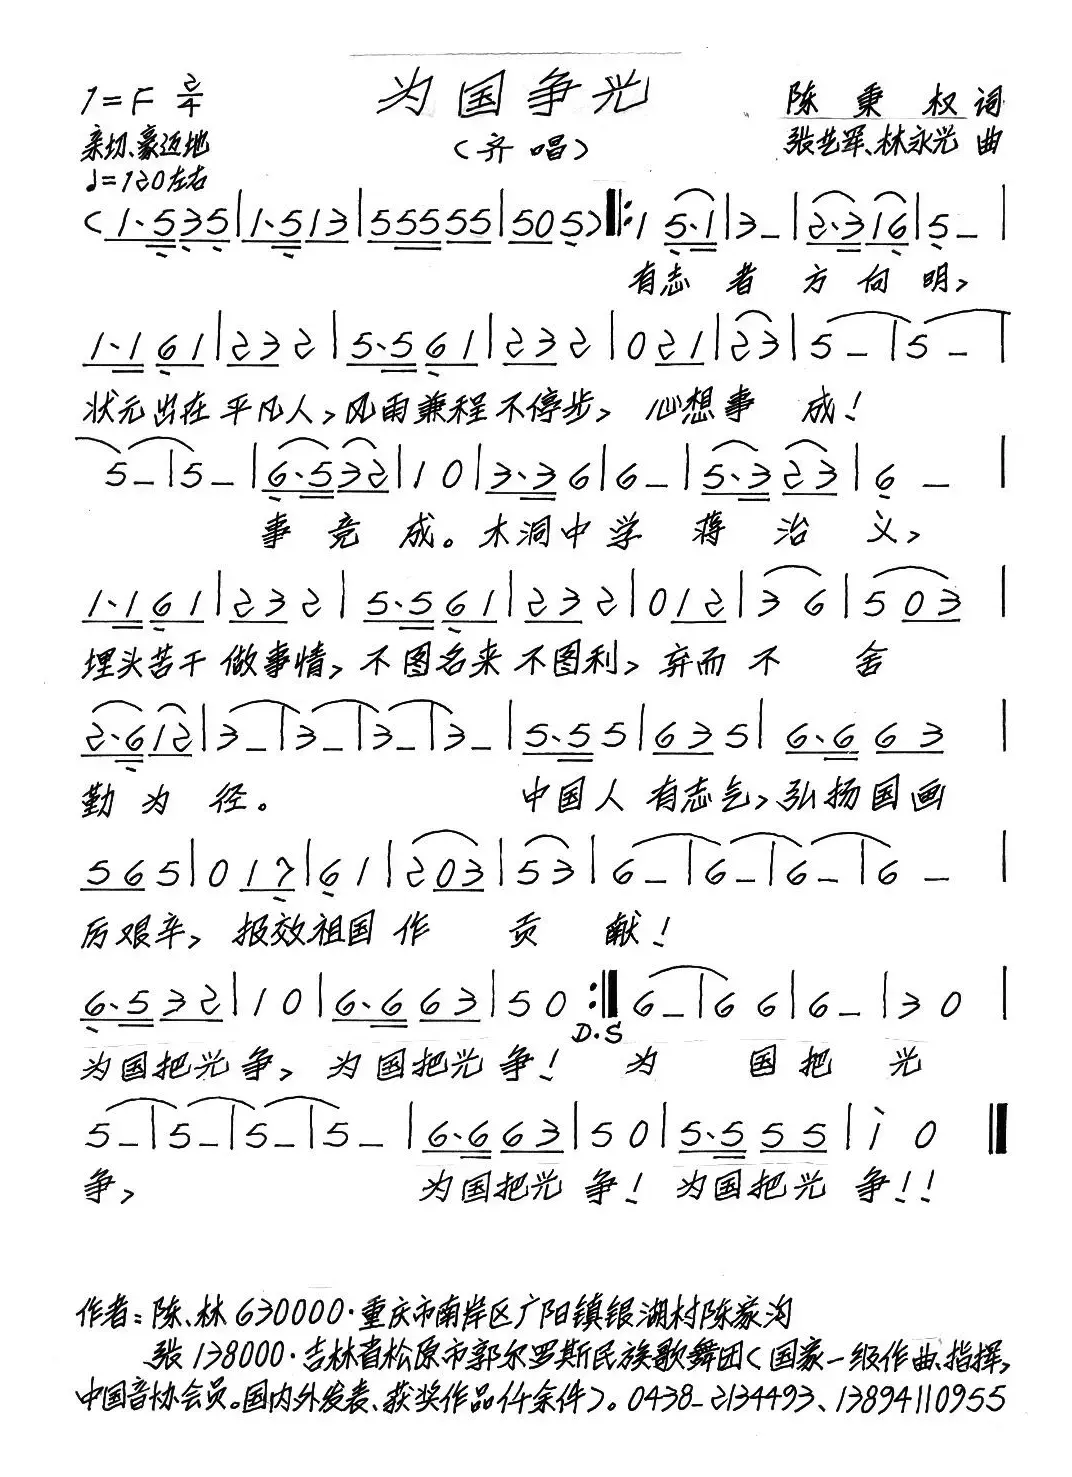 1=F 2/4 为国争光 陈秉权词
亲切、豪迈地 （齐唱） 张艺军、林永光 曲
♩=120左右
(1·535|1·513|55555|505)‖:1 5·1|3–|2·316|5–|
有志者方向明，
1·161|232|5·561|232|021|23|5–|5–|
状元出在平凡人，风雨兼程不停步，心想事成！
5–|5–|6·532|10|3·36|6–|5·323|6–|
事竞成。木洞中学蒋治义，
1·161|232|5·561|232|012|36|503|
埋头苦干做事情，不图名来不图利，弃而不舍
2·612|3–|3–|3–|3–|5·55|635|6·663|
勤为径。中国人有志气，弘扬国画
565|017|61|203|53|6–|6–|6–|6–|
历艰辛，报效祖国作贡献！
6·532|10|6·663|50:‖6–|66|6–|30|
D.S
为国把光争，为国把光争！为国把光
5–|5–|5–|5–|6·663|50|5·555|i0‖
争，为国把光争！为国把光争！！
作者：陈、林 630000·重庆市南岸区广阳镇银湖村陈家沟
张 138000·吉林省松原市郭尔罗斯民族歌舞团（国家一级作曲、指挥，
中国音协会员。国内外发表、获奖作品仟余件）。0438–2134493、13894110955